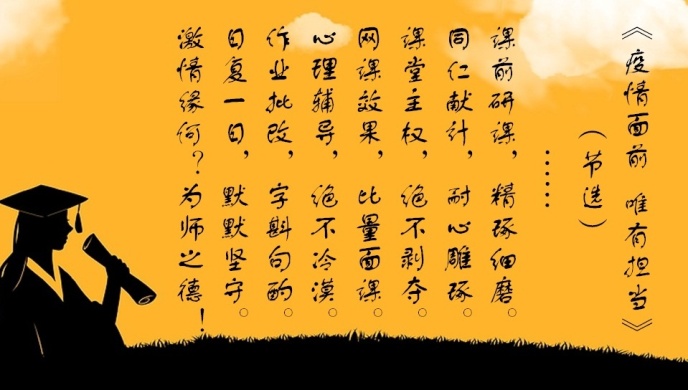 《疫情面前 唯有担当》
（节选）
……
课前研课，精琢细磨。
同仁献计，耐心雕琢。
课堂主权，绝不剥夺。
网课效果，比量面课。
心理辅导，绝不冷漠。
作业批改，字斟句酌。
日复一日，默默坚守。
激情缘何？为师之德！